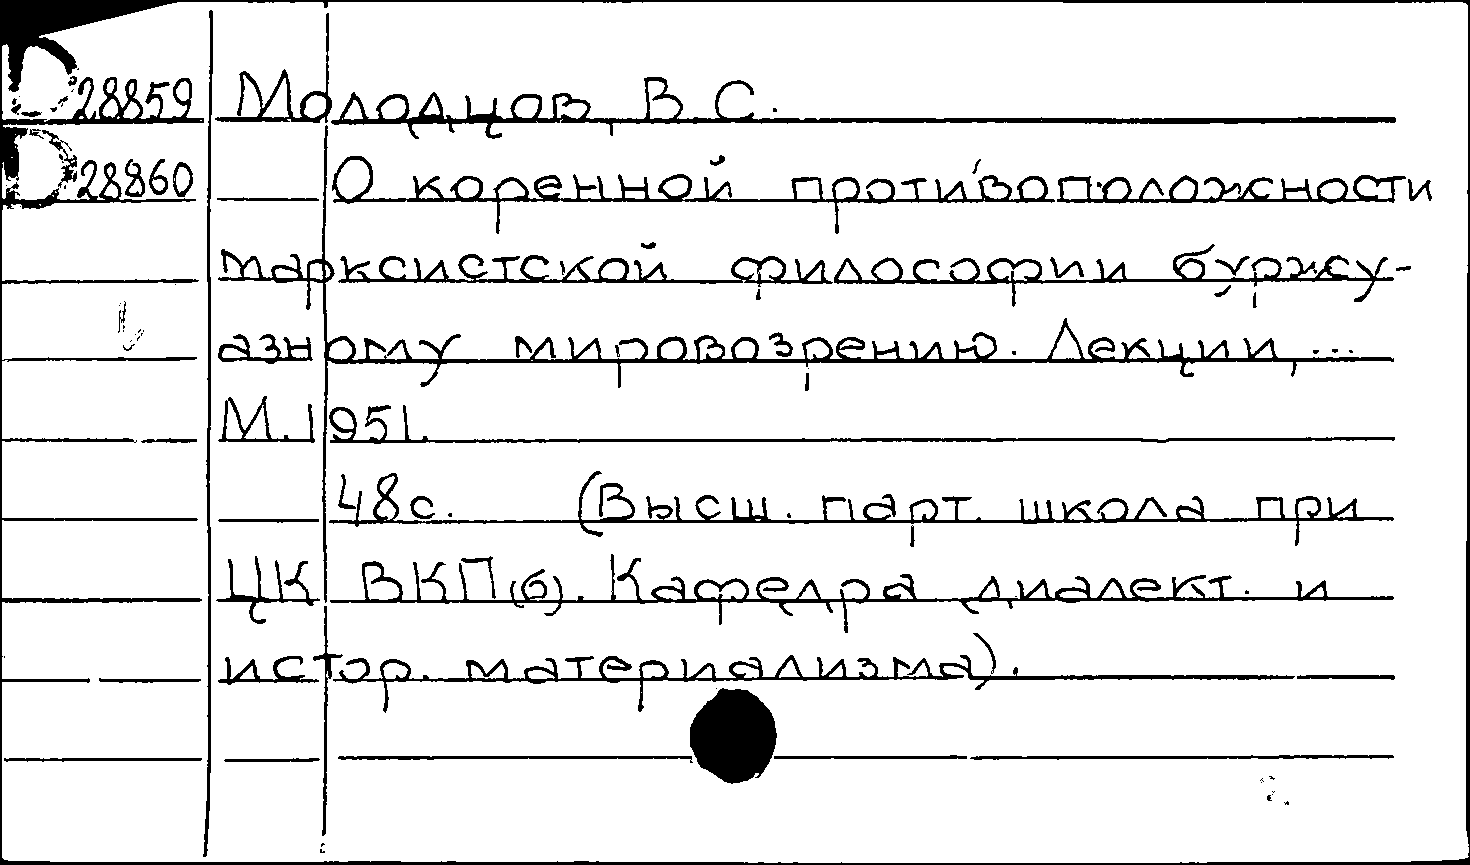 D 28859 Молодцов, В.С.
D 28860 О коренной противоположности
марксистской философии буржу-
азному мировозрению. Лекции,...
М. 1951.
48с. (Высш. парт. школа при
ЦК ВКП(б). Кафедра диалект. и
истор. материализма).